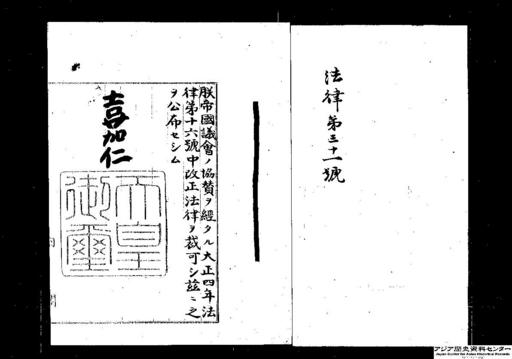 法律第三十一號
朕帝國議會ノ協賛ヲ經タル大正四年法
律第十六號中改正法律ヲ裁可シ茲ニ之
ヲ公布セシム
嘉仁
天皇
御璽
アジア歴史資料センター
Japan Center for Asian Historical Records